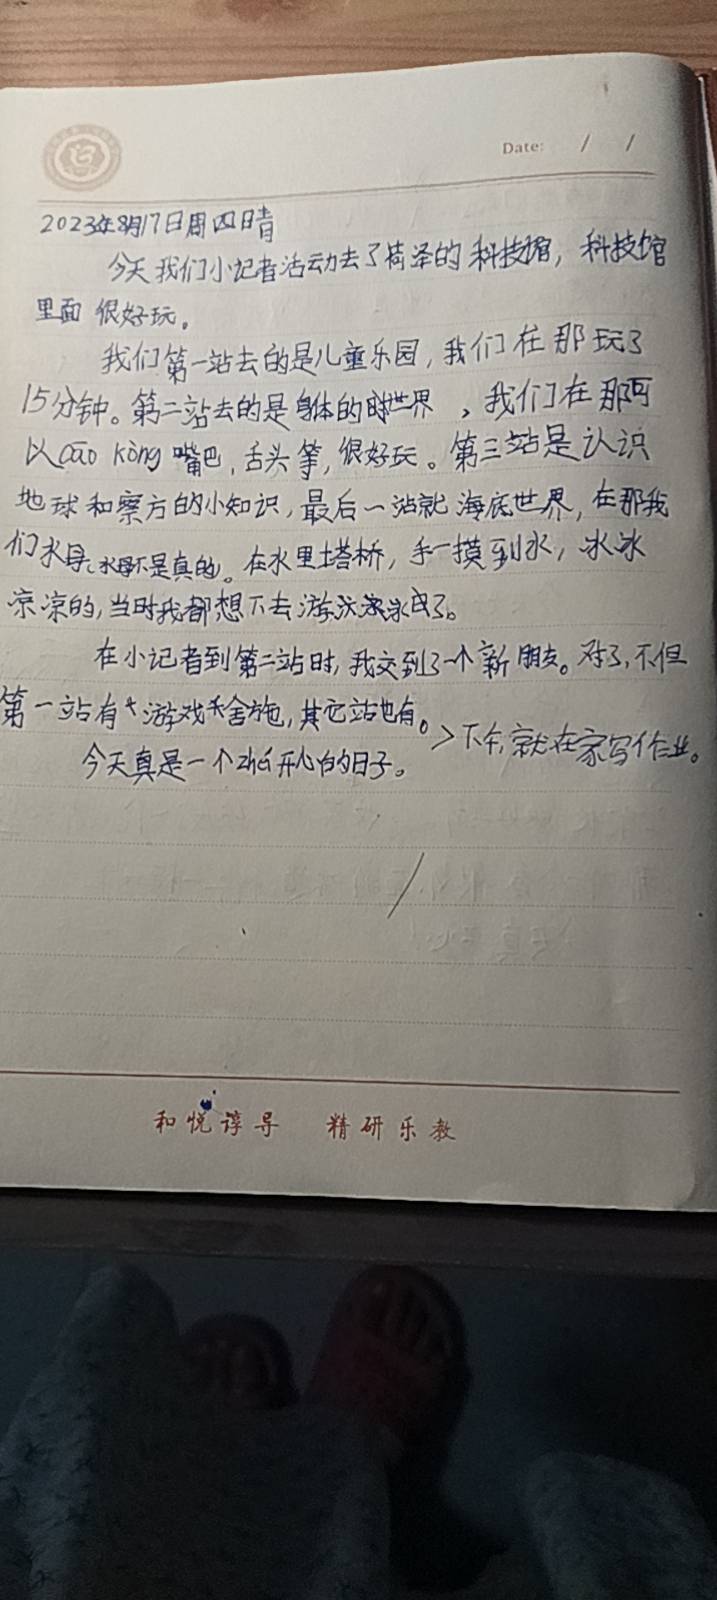 Date: / /
2023年8月17日周四晴
今天我们小记者活动去了菏泽的科技馆，科技馆
里面很好玩。
我们第一站去的是儿童乐园，我们在那玩了
15分钟。第二站去的是身体的世界，我们在那可
以cāo kòng嘴巴，舌头等，很好玩。第三站是认识
地球和察方的小知识，最后一站就海底世界，在那我
们水母，水母不是真的。在水里塔桥，手一摸到水，冰冰
凉凉的，当时我都想下去游泳了。
在小记者到第二站时，我交到了一个新朋友。对了，不但
第一站有游戏舍施，其它站也有。
>下午，就在家写作业。
今天真是一个开心的日子。
和悦谆导 精研乐教